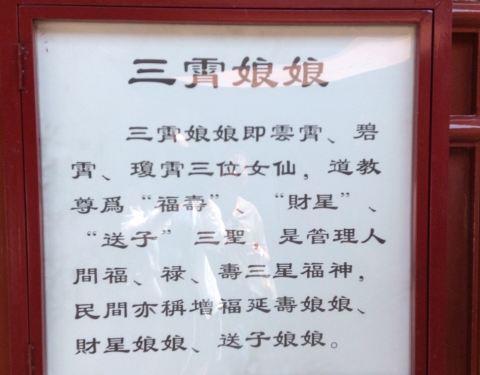 三霄娘娘
三霄娘娘即雲霄、碧
霄、瓊霄三位女仙，道教
尊爲“福壽”、“財星”、
“送子”三聖，是管理人
間福、禄、壽三星福神，
民間亦稱增福延壽娘娘、
財星娘娘、送子娘娘。